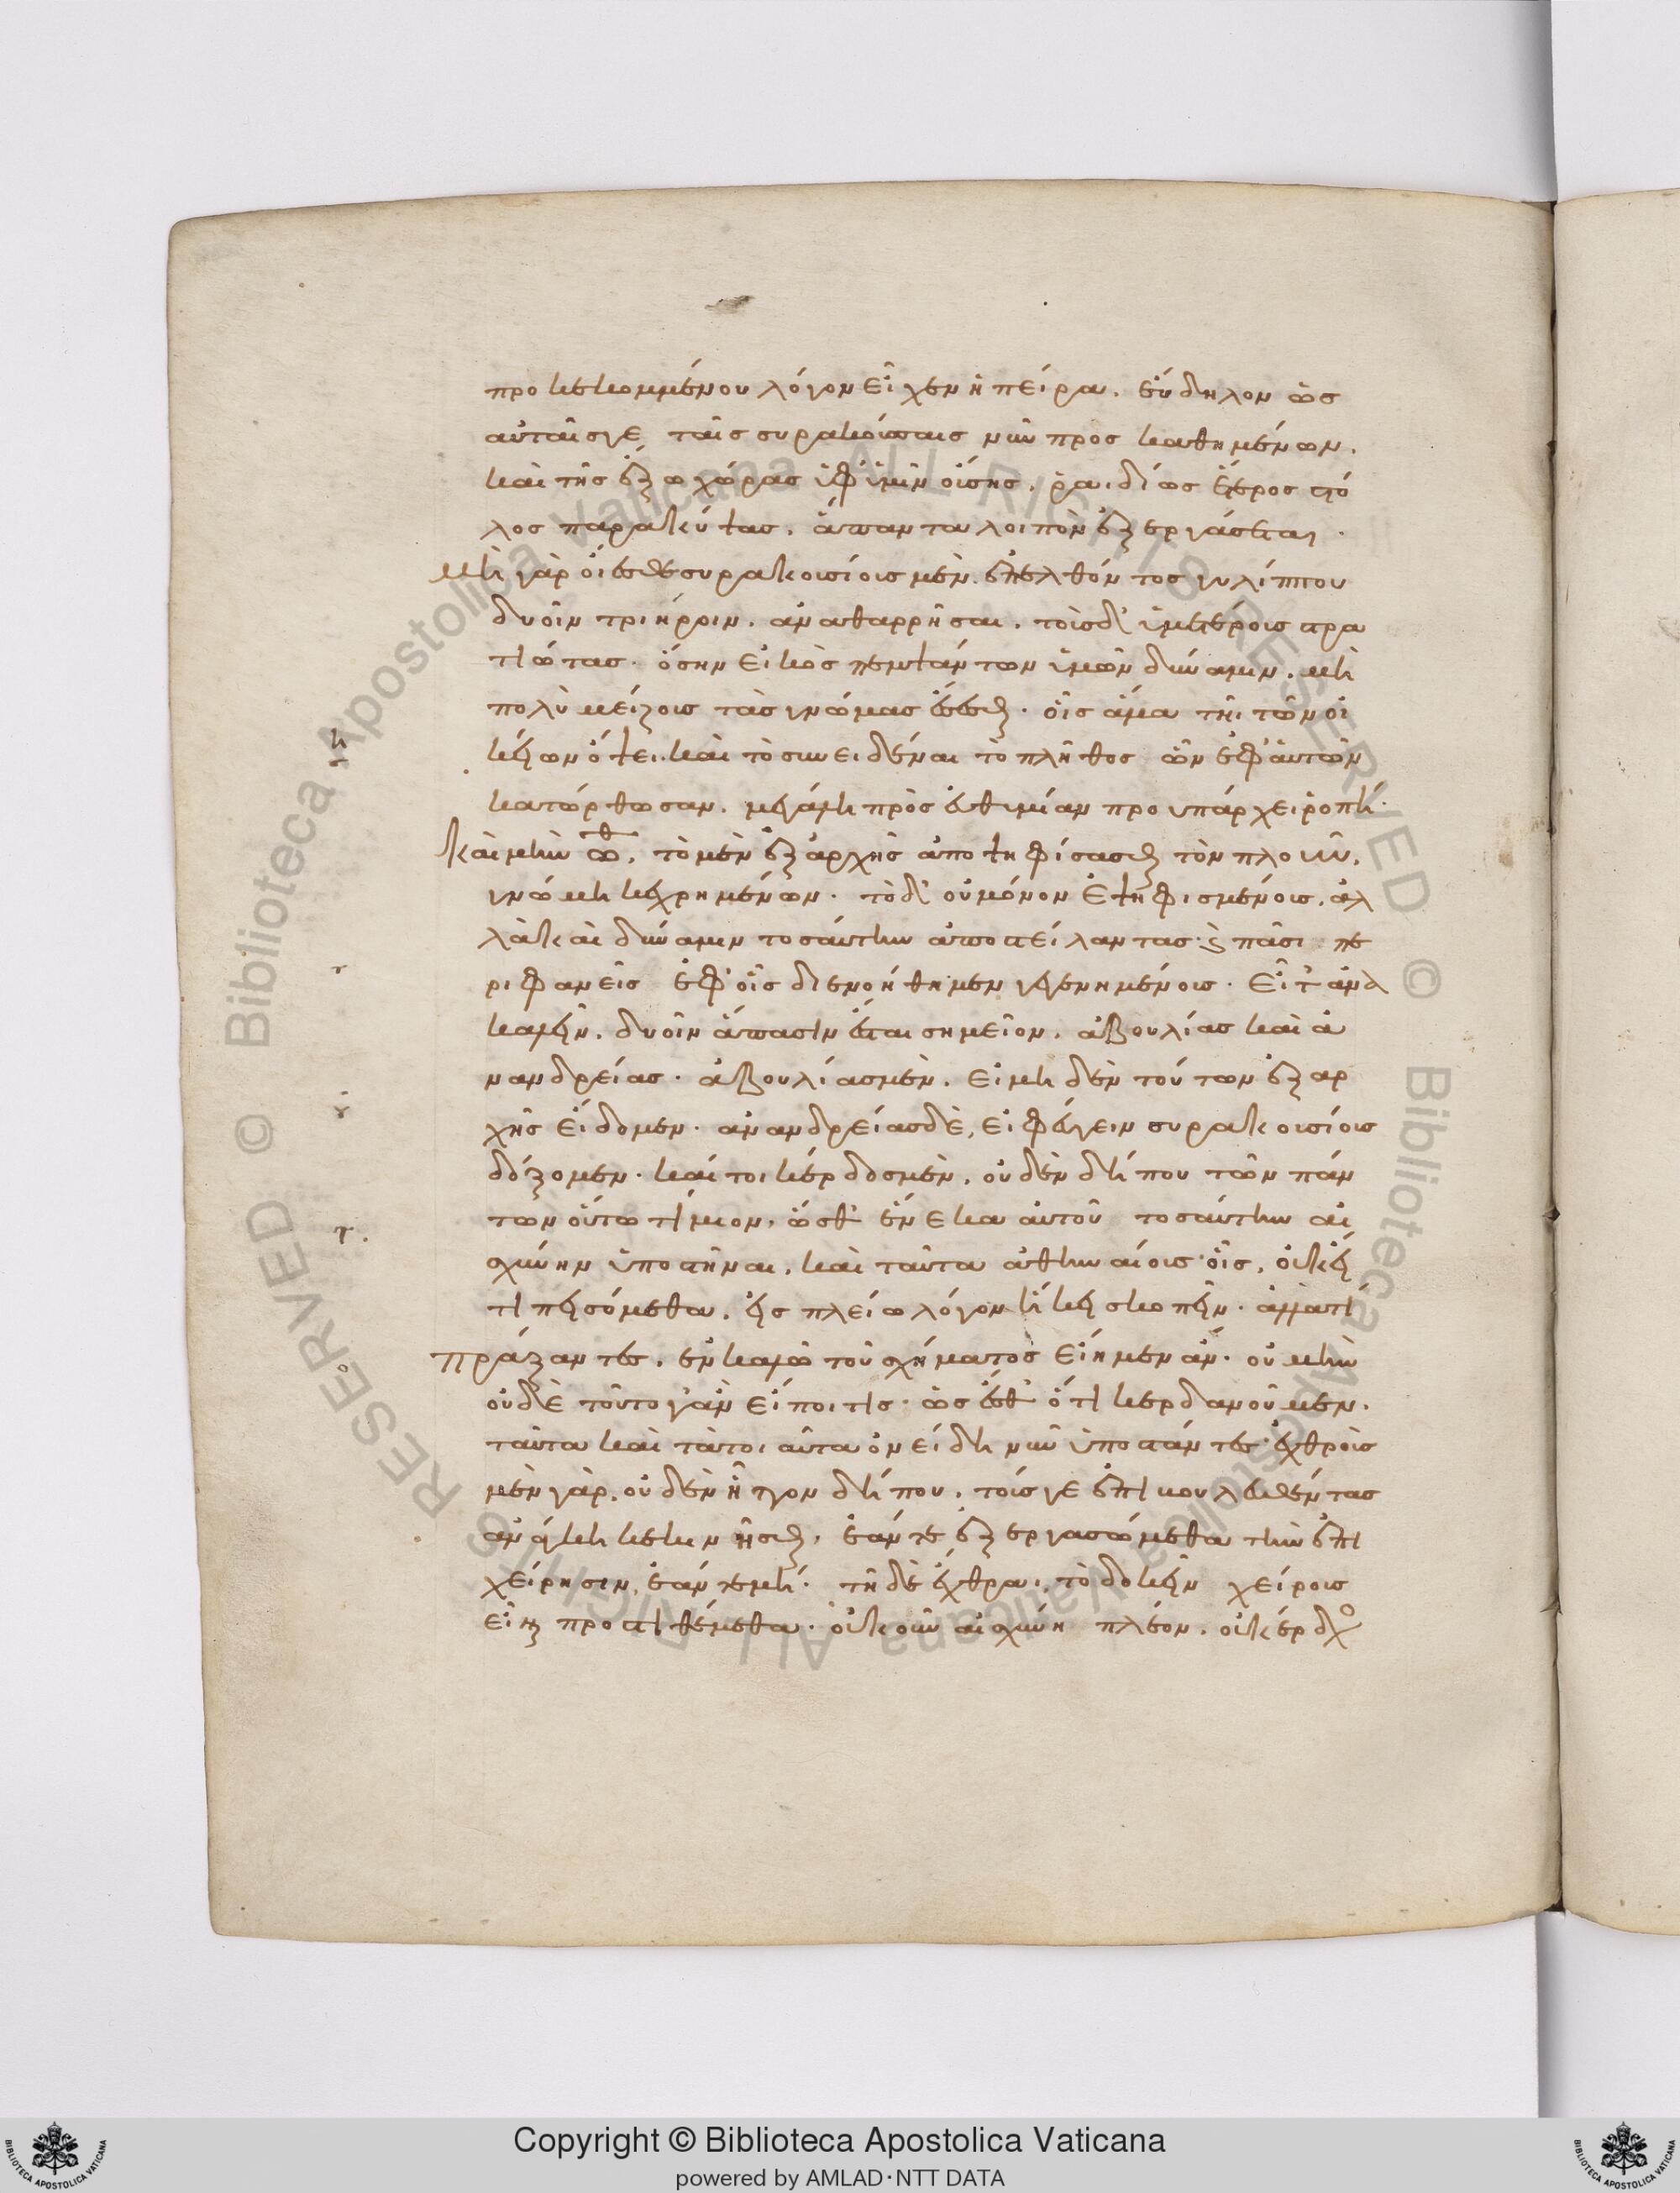 προκεκομμένου λόγον εἶχεν ἡ πεῖρα. εὔδηλον ὡς
αὐταῖς γε ταῖς συρακούσαις νῦν προσκαθημένων.
καὶ τῆς ἔξω χώρας ὑφ' ἡμῖν οὔσης. ῥαιδίως ἕτερος στό
λος παρακεύψας. ἅπαντα λοιπὸν ἐξεργάσεται.
Μὴ γὰρ οἴεσθε συρακουσίοις μὲν ἐπελθόντος γυλίππου
δυοῖν τριήροιν. ἀναθαρρῆσαι. τοῖς δ' ἡμετέροις στρα
τιώταις. ὅσην εἰκὸς πεμψάντων ἡμῶν δύναμιν. μὴ
πολὺ μείζοις τὰς γνώμας ἔσεσθαι. οἷς ἅμα τῆι τῶν οἰ
κείων ὄψει. καὶ τὸ συνειδέναι τὸ πλῆθος ὧν ἐφ' ἑαυτῶν
κατώρθωσαν. μεγάλη πρὸς εὐθυμίαν προυπάρχει ῥοπή.
Καὶ μὴν τὸ μὲν ἐξ ἀρχῆς ἀποψηφίσασθαι τὸν πλοῦν.
γνώμη κεχρημένων. τὸ δ' οὐ μόνον ἐψηφισμένοις. ἀλ
λὰ καὶ δύναμιν τοσαύτην ἀποστείλαντας. καὶ πᾶσι πε
ριφανεῖς ἐφ' οἷς διενοήθημεν γεγενημένοις. εἶτ' ἀνα
καλεῖν. δυοῖν ἅπασιν ἔσται σημεῖον. ἀβουλίας καὶ ἀ
νανδρείας. ἀβουλίας μὲν. εἰ μηδὲν τούτων ἐξ ἀρ
χῆς εἴδομεν. ἀνανδρείας δὲ, εἰ φεύγειν συρακουσίους
δόξομεν. καίτοι κέρδος μὲν. οὐδὲν δήπου τῶν πάν
των οὕτω τίμιον. ὥσθ' ἕνεκα αὐτοῦ τοσαύτην αἰ
σχύνην ὑποστῆναι. καὶ ταῦτα ἀθηναίοις. οἷς, οὐκ εἴ
τι πεισόμεθα. εἰς πλείω λόγον ἥκει σκοπεῖν. ἀλλὰ τί
πράξαντες. ἐν καλῶ τοῦ σχήματος εἴημεν ἄν. οὐ μὴν
οὐδὲ τοῦτο γ' ἂν εἴποι τις. ὡς ἔσθ' ὅ τι κερδανοῦμεν.
ταῦτα καὶ τὰ τοιαῦτα ὀνείδη νῦν ὑποστάντες. ἐχθροῖς
μὲν γὰρ. οὐδὲν ἧττον δήπου. τοῖς γε ἐπιβουλευθέντας
ἀνάγκη κεκινῆσθαι, ἐάν τε ἐξεργασώμεθα τὴν ἐπι
χείρησιν, ἐάν τε μή. τῆ δὲ ἔχθραι, τὸ δοκεῖν χείροις
εἶναι προστιθέμεθα. οὐκοῦν αἰσχύνη πλέον. οὐ κέρδος